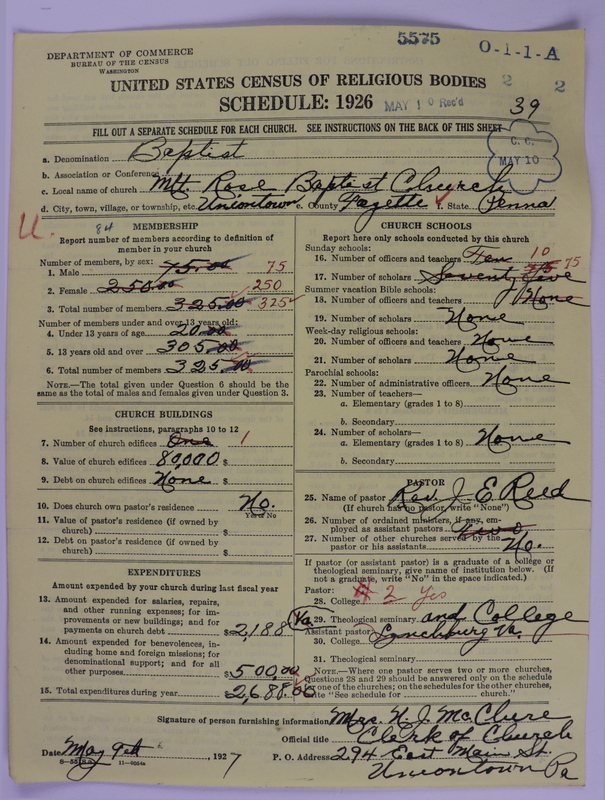 5575
O-1-1-A
DEPARTMENT OF COMMERCE
BUREAU OF THE CENSUS
WASHINGTON
2 2
UNITED STATES CENSUS OF RELIGIOUS BODIES
SCHEDULE: 1926
MAY 10 Rec'd
39
FILL OUT A SEPARATE SCHEDULE FOR EACH CHURCH. SEE INSTRUCTIONS ON THE BACK OF THIS SHEET
C. C.
MAY 10
a. Denomination Baptist
b. Association or Conference
c. Local name of church Mt. Rose Baptist Church
d. City, town, village, or township, etc. Uniontown e. County Fayette f. State Penna
U.
84
MEMBERSHIP
Report number of members according to definition of
member in your church
Number of members, by sex:
1. Male 75.00 75
2. Female 250.00 250
3. Total number of members 325.00 325
Number of members under and over 13 years old:
4. Under 13 years of age 20.00
5. 13 years old and over 305.00
6. Total number of members 325.00
NOTE.—The total given under Question 6 should be
same as the total of males and females given under Question 3.
CHURCH BUILDINGS
See instructions, paragraphs 10 to 12
7. Number of church edifices One 1
8. Value of church edifices 80,000 $
9. Debt on church edifices None $
10. Does church own pastor's residence No.
Yes or No
11. Value of pastor's residence (if owned by
church) $
12. Debt on pastor's residence (if owned by
church) $
EXPENDITURES
Amount expended by your church during last fiscal year
13. Amount expended for salaries, repairs,
and other running expenses; for im-
provements or new buildings; and for
payments on church debt $2,188
14. Amount expended for benevolences, in-
cluding home and foreign missions; for
denominational support; and for all
other purposes $500.00
15. Total expenditures during year 2,688.00
CHURCH SCHOOLS
Report here only schools conducted by this church
Sunday schools:
16. Number of officers and teachers Ten 10
17. Number of scholars Seventy five 75
Summer vacation Bible schools:
18. Number of officers and teachers None
19. Number of scholars None
Week-day religious schools:
20. Number of officers and teachers None
21. Number of scholars None
Parochial schools:
22. Number of administrative officers None
23. Number of teachers—
a. Elementary (grades 1 to 8)
b. Secondary
24. Number of scholars—
a. Elementary (grades 1 to 8) None
b. Secondary
PASTOR
25. Name of pastor Rev. J. E. Reed
(If church has no pastor, write "None")
26. Number of ordained ministers, if any, em-
ployed as assistant pastors Two
27. Number of other churches served by the
pastor or his assistants No.
If pastor (or assistant pastor) is a graduate of a college or
theological seminary, give name of institution below. (If
not a graduate, write "No" in the space indicated.)
Pastor:
28. College 2 Yes
29. Theological seminary Va. and College
Assistant pastor: Lynchburg Va.
30. College
31. Theological seminary
NOTE.—Where one pastor serves two or more churches,
Questions 28 and 29 should be answered only on the schedule
for one of the churches; on the schedules for the other churches,
write "See schedule for church."
Signature of person furnishing information Mrs. N. J. McClure
Official title Clerk of Church
Date May 9th, 1927 P. O. Address 294 East Main St.
Uniontown Pa
11—9034a